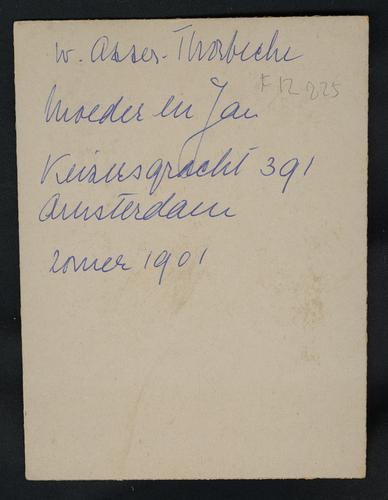 W. Asser-Thorbecke
F 12225
Moeder en Jan
Keizersgracht 391
Amsterdam
zomer 1901